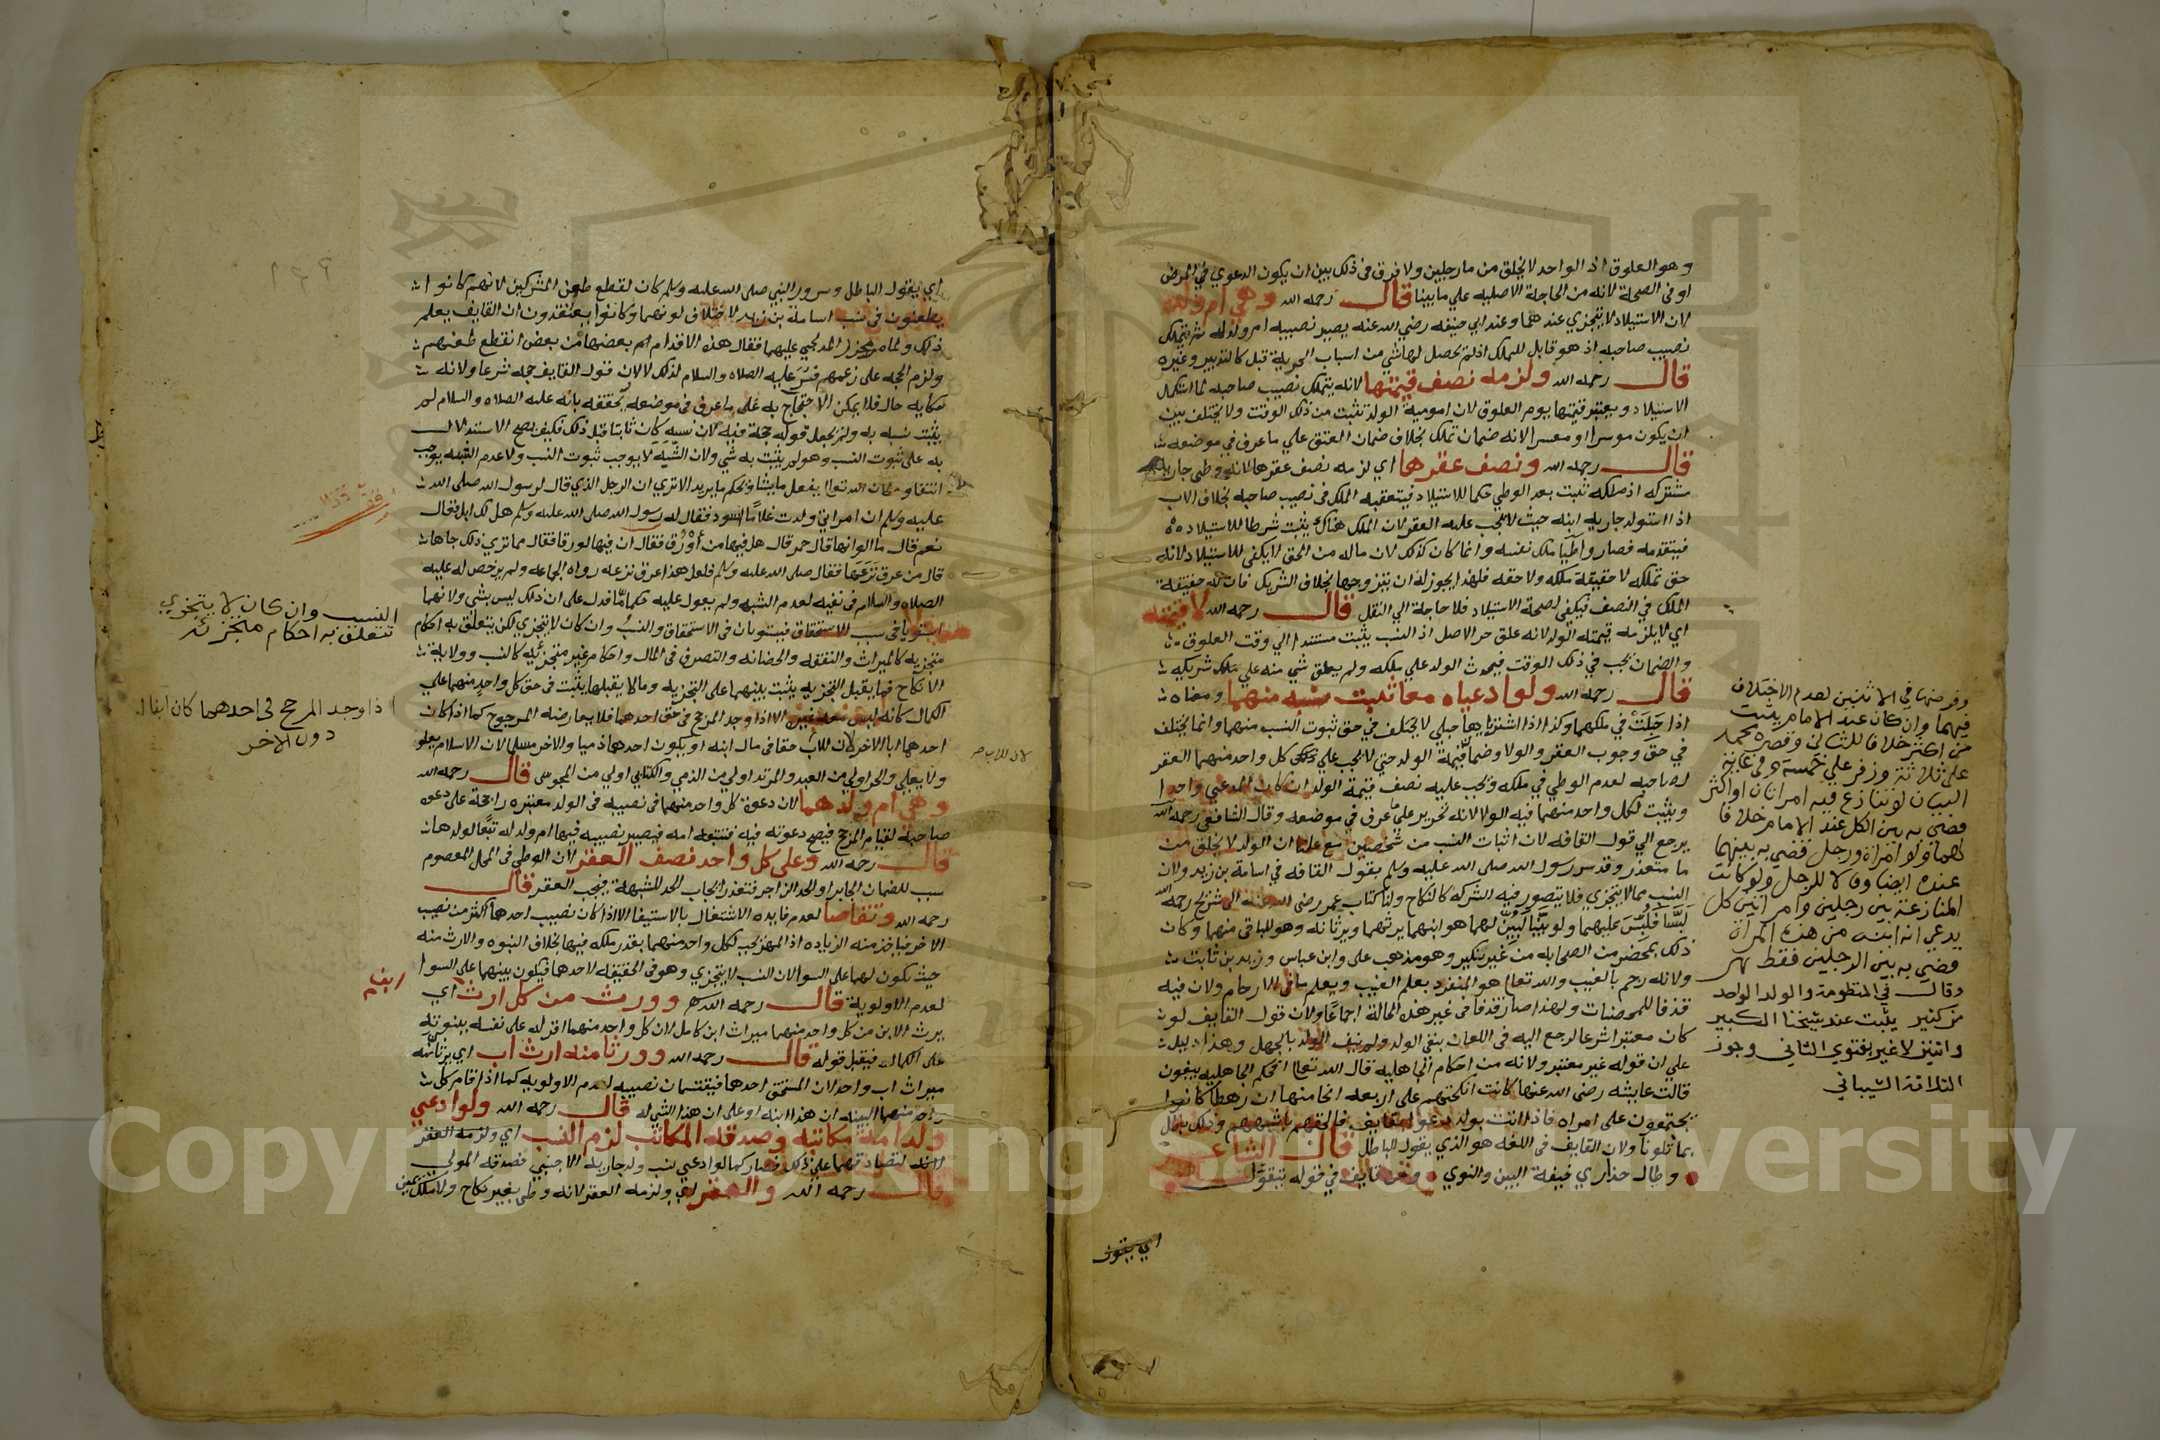 وهو العلوق اذ الواحد لا يخلق من ما رجلين ولا فرق في ذلك بين ان يكون الدعوي في المرض
او في الصحة لانه من الحاجة الاصليه علي ما بينا قال رحمه الله وهي ام ولده
لان الاستيلاد لا يتجزي عندهما وعند ابي حنيفه رضي الله عنه يصير نصيبه ام ولد له ثم يتملك
نصيب صاحبه اذ هو قابل للملك اذ لم يحصل لها شي من اسباب الحرية قبل كالتدبير وغيره
قال رحمه الله ولزمه نصف قيمتها لانه يتملك نصيب صاحبه لما استكمل
الاستيلاد ويعتبر قيمتها يوم العلوق لان امومية الولد تثبت من ذلك الوقت ولا يختلف بين
ان يكون موسرا او معسرا لانه ضمان تملك بخلاف ضمان العتق علي ما عرف في موضعه
قال رحمه الله ونصف عقرها اي لزمه نصف عقرها لانه وطي جارية
مشتركه اذ ملكه ثبت بعد الوطي حكما للاستيلاد فيتعقبه الملك في نصيب صاحبه بخلاف الاب
اذا استولد جارية ابنه حيث لا يجب عليه العقر لان الملك هناك يثبت شرطا للاستيلاد
فيتقدمه فصار واطيا ملك نفسه وانما كان كذلك لان ماله من الحق لا يكفي للاستيلاد لانه
حق تملكه لا حقيقة ملكه ولا حقه فلهذا يجوز له ان يتزوجها بخلاف الشريك فان له حقيقة
الملك في النصف فيكفي لصحة الاستيلاد فلا حاجة الي النقل قال رحمه الله لا قيمته
اي لا يلزمه قيمته الولد لانه علق حر الاصل اذ النسب يثبت مستندا الي وقت العلوق
والضمان يجب في ذلك الوقت فيحدث الولد علي ملكه ولم يعلق شي منه علي ملك شريكه
قال رحمه الله ولو ادعياه معا ثبت نسبه منهما ومعناه
اذا حبلت في ملكهما وكذا اذا اشترياها حبلي لا يختلف في حق ثبوت النسب منهما وانما يختلف
في حق وجوب العقر والولا وضمان قيمة الولد حتي لا يجب علي كل واحد منهما العقر
لصاحبه لعدم الوطي في ملكه ويجب عليه نصف قيمة الولد ان كان المدعي واحدا
ويثبت لكل واحد منهما فيه الولا لانه تحرير علي ما عرف في موضعه وقال الشافعي رحمه الله
يرجع الي قول القافه لان اثبات النسب من شخصين مع علمنا ان الولد لا يخلق من
ما متعذر وقد سر رسول الله صلي الله عليه وسلم بقول القافه في اسامة بن زيد ولان
النسب مما لا يتجزي فلا يتصور فيه الشركه كالنكاح ولنا كتاب عمر رضي الله عنه الي شريح رحمه الله
لبسا فلبس عليهما ولو بينا لبين لهما هو ابنهما يرثهما ويرثانه وهو للباقي منهما وكان
ذلك بمحضر من الصحابه من غير نكير وهو مذهب علي وابن عباس وزيد بن ثابت
ولانه رجم بالغيب والله تعالي هو المنفرد بعلم الغيب ويعلم ما في الارحام ولان فيه
قذفا للمحصنات ولهذا صار قذفا في غير هذه الحالة اجماعا ولان قول القايف لو
كان معتبرا شرعا لرجع اليه في اللعان بنفي الولد ولم ينف الولد بالجهل وهذا دليل
علي ان قوله غير معتبر ولانه من احكام الجاهليه قال الله تعالي افحكم الجاهليه يبغون
قالت عايشه رضي الله عنها كانت انكحتهم علي اربعه انحا منها ان رهطا كانوا
يجتمعون علي امراه فاذا اتت بولد دعوا بقايف فالحقهم باشبههم وذلك باطل
بما تلونا ولان القايف في اللغه هو الذي يقول الباطل قال الشاعر
وطال حذاري خيفة البين والنوي ومن قايف في قوله يتقول
اي يقول
وفرضها في الاثنين لعدم الاختلاف
فيهما وان كان عند الامام يثبت
من اكثر خلافا للثاني وقصره محمد
علي ثلاثة وزفر علي خمسة وفي غاية
البيان لو تنازع فيه امراتان او اكثر
قضي به بين الكل عند الامام خلافا
لهما ولو امراة ورجل قضي به بينهما
عنده ايضا وقالا للرجل ولو كانت
المنازعة بين رجلين وامراتين كل
يدعي انه ابنه من هذه المراة
قضي به بين الرجلين فقط نهر
وقال في المنظومة والولد الواحد
من كثير يثبت عند شيخنا الكبير
واثنين لا غير بفتوي الثاني وجوز
الثلاثة الشيباني
اي يقول الباطل وسرور النبي صلي الله عليه وسلم كان لقطع طعن المشركين لانهم كانوا
يطعنون في نسب اسامة بن زيد لاختلاف لونهما وكانوا يعتقدون ان القايف يعلم
ذلك ولما مر مجزز المدلجي عليهما فقال هذه الاقدام ام بعضها من بعض انقطع طعنهم
ولزم الحجه علي زعمهم فسر عليه الصلاه والسلام لذلك لا لان قول القايف حجه شرعا ولانه
حكايه حال فلا يمكن الاحتجاج به علي ما عرف في موضعه يحققه بانه عليه الصلاه والسلام لم
يثبت نسبه به ولم يجعل قوله حجة فيه لان نسبه كان ثابتا قبل ذلك فكيف يصح الاستدلال
به علي ثبوت النسب وهو لم يثبت به شي ولان الشبه لا يوجب ثبوت النسب ولا عدم الشبه يوجب
انتفاوه لان الله تعالي يفعل ما يشا ويحكم ما يريد الا تري ان الرجل الذي قال لرسول الله صلي الله
عليه وسلم ان امراتي ولدت غلاما اسود فقال له رسول الله صلي الله عليه وسلم هل لك ابل فقال
نعم قال ما الوانها قال حمر قال هل فيها من اورق فقال ان فيها لورقا فقال مما تري ذلك جاها
قال من عرق نزعها فقال صلي الله عليه وسلم فلعل هذا عرق نزعه رواه الجماعه ولم يرخص له عليه
الصلاه والسلام في نفيه لعدم الشبه ولم يعول عليه حكما ما فدل علي ان ذلك ليس بشي ولانهما
استويا في سبب الاستحقاق فيستويان في الاستحقاق والنسب وان كان لا يتجزي لكن يتعلق به احكام
متجزيه كالميراث والنفقه والحضانه والتصرف في المال واحكام غير متجزئيه كالنسب وولاية
الانكاح فما يقبل التجزيه يثبت بينهما علي التجزيه وما لا يقبلها يثبت في حق كل واحد منهما علي
الكمال كانه ليس معه غيره الا اذا وجد المرجح في حق احدهما فلا يعارضه المرجوح كما اذا كان
احدهما ابا الاخر لان للاب حقا في مال ابنه او يكون احدهما ذميا والاخر مسلما لان الاسلام يعلو
ولا يعلي والحر اولي من العبد والمرتد اولي من الذمي والكتابي اولي من المجوسي قال رحمه الله
وهي ام ولدهما لان دعوة كل واحد منهما في نصيبه في الولد معتبره راجحة علي دعوه
صاحبه لقيام المرجح فيصح دعوته فيه فتتبعه امه فيصير نصيبه فيها ام ولد له تبعا لولدها
قال رحمه الله وعلي كل واحد نصف العقر لان الوطي في المحل المعصوم
سبب للضمان الجابر او الحد الزاجر فتعذر ايجاب الحد للشبهة فيجب العقر قال
رحمه الله وتقاصا لعدم فايده الاشتغال بالاستيفا الا اذا كان نصيب احدهما اكثر من نصيب
الاخر فياخذ منه الزياده اذ المهر يجب لكل واحد منهما بقدر ملكه فيها بخلاف البنوه والارث منه
حيث يكون لهما علي السوا لان النسب لا يتجزي وهو في الحقيقه لاحدهما فيكون بينهما علي السوا
لعدم الاولوية قال رحمه الله وورث من كل ارث ابن اي
يرث الابن من كل واحد منهما ميراث ابن كامل لان كل واحد منهما اقر له علي نفسه ببنوته
علي الكمال فيقبل قوله قال رحمه الله وورثا منه ارث اب اي يرثانه
ميراث اب واحد لان المستحق احدهما فيقتسمان نصيبه لعدم الاولويه كما اذا اقام كل
واحد منهما البينه ان هذا ابنه او علي ان هذا الشي له قال رحمه الله ولو ادعي
ولد امة مكاتبه وصدقه المكاتب لزم النسب اي ولزمه العقر
لانه لتصادقهما علي ذلك فصار كما لو ادعي نسب ولد جارية الاجنبي فصدقه المولي
قال رحمه الله والعقر اي ولزمه العقر لانه وطي بغير نكاح ولا ملك يمين
النسب وان كان لا يتجزي
تتعلق به احكام متجزئة
اذا وجد المرجح في احدهما كان ابقا له
دون الاخر
لان للاب